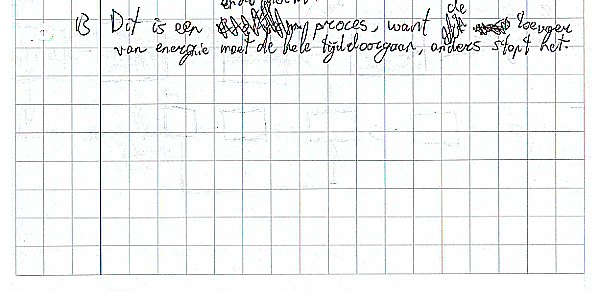 13 Dit is een proces, want de toevoer
van energie moet de hele tijd doorgaan, anders stopt het.